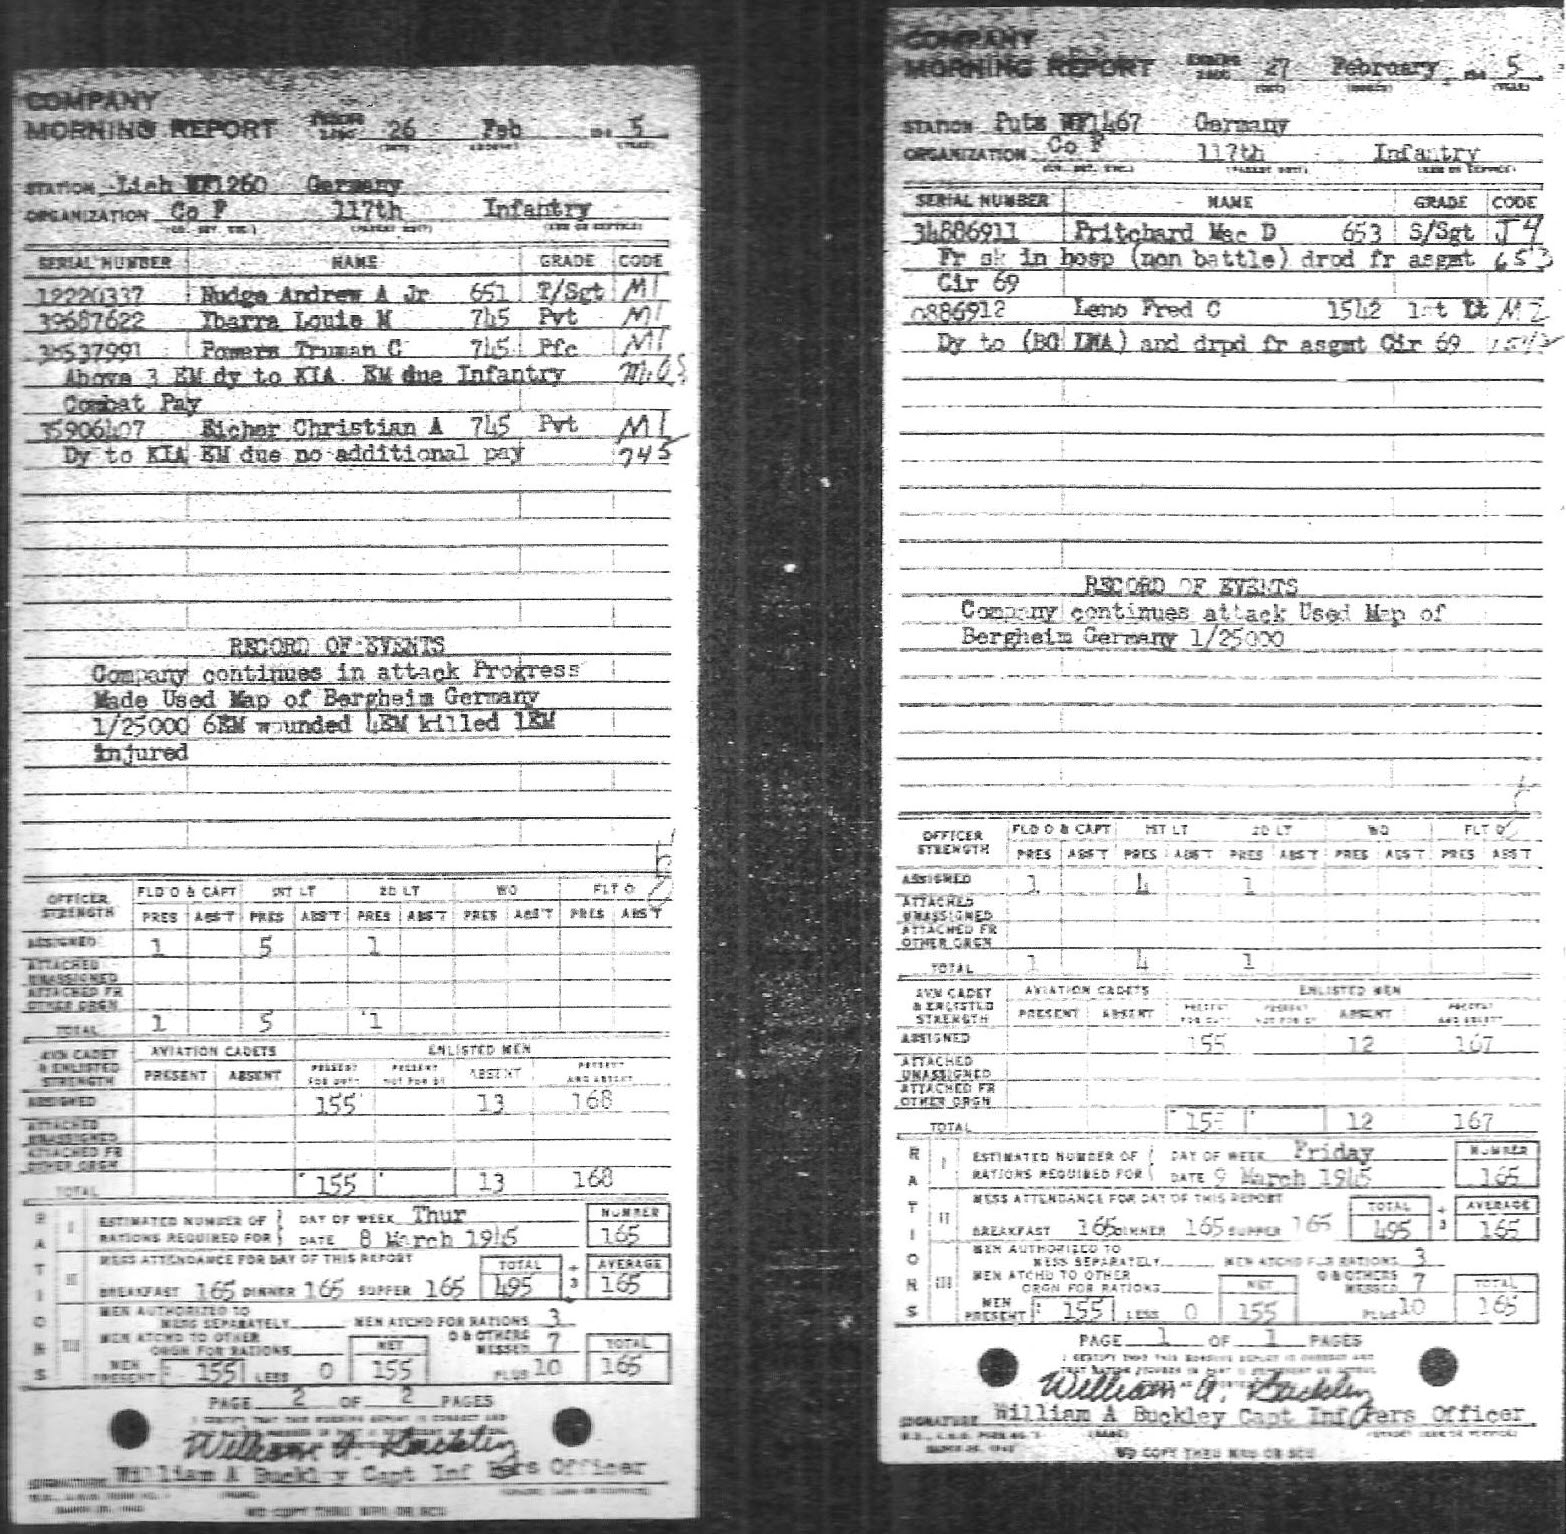 COMPANY
MORNING REPORT ENDING 2400 26 Feb 194 5
STATION Lich WF1260 Germany
ORGANIZATION Co F 117th Infantry
SERIAL NUMBER NAME GRADE CODE
Rudge Andrew A Jr 651 T/Sgt M1
39687622 Ybarra Louis M 745 Pvt M1
Powers Truman C 745 Pfc M1
Above 3 EM dy to KIA EM due Infantry
Combat Pay
35906407 Eicher Christian A 745 Pvt M1
Dy to KIA EM due no additional pay 745
RECORD OF EVENTS
Company continues in attack Progress
Made Used Map of Bergheim Germany
1/25000 6EM wounded 4EM killed 1EM
injured
OFFICER STRENGTH FLD O & CAPT 1ST LT 2D LT WO FLT O
PRES ABS'T PRES ABS'T PRES ABS'T PRES ABS'T PRES ABS'T
ASSIGNED 1 5 1
ATTACHED UNASSIGNED
ATTACHED FR OTHER ORGN
TOTAL 1 5 1
AVN CADET & ENLISTED STRENGTH AVIATION CADETS ENLISTED MEN
PRESENT ABSENT PRESENT FOR DUTY PRESENT NOT FOR DY ABSENT PRESENT AND ABSENT
ASSIGNED 155 13 168
ATTACHED UNASSIGNED
ATTACHED FR OTHER ORGN
TOTAL 155 13 168
RATIONS
I ESTIMATED NUMBER OF RATIONS REQUIRED FOR DAY OF WEEK Thur NUMBER
DATE 8 March 1945 165
II MESS ATTENDANCE FOR DAY OF THIS REPORT TOTAL ÷ 3 AVERAGE
BREAKFAST 165 DINNER 165 SUPPER 165 495 165
III MEN AUTHORIZED TO MESS SEPARATELY MEN ATCHD FOR RATIONS 3
MEN ATCHD TO OTHER ORGN FOR RATIONS NET O & OTHERS MESSED 7 TOTAL
MEN PRESENT 155 LESS 0 155 PLUS 10 165
PAGE 2 OF 2 PAGES
I CERTIFY THAT THIS MORNING REPORT IS CORRECT AND
William A. Buckley
SIGNATURE William A Buckl y Capt Inf Pers Officer
COMPANY
MORNING REPORT ENDING 2400 27 February 194 5
STATION Putz WF1467 Germany
ORGANIZATION Co F 117th Infantry
SERIAL NUMBER NAME GRADE CODE
34886911 Pritchard Mac D 653 S/Sgt J4
Fr sk in hosp (non battle) drpd fr asgmt 653
Cir 69
0886912 Leno Fred C 1542 1st Lt M2
Dy to (BC LWA) and drpd fr asgmt Cir 69 1542
RECORD OF EVENTS
Company continues attack Used Map of
Bergheim Germany 1/25000
OFFICER STRENGTH FLD O & CAPT 1ST LT 2D LT WO FLT O
PRES ABS'T PRES ABS'T PRES ABS'T PRES ABS'T PRES ABS'T
ASSIGNED 1 4 1
ATTACHED UNASSIGNED
ATTACHED FR OTHER ORGN
TOTAL 1 4 1
AVN CADET & ENLISTED STRENGTH AVIATION CADETS ENLISTED MEN
PRESENT ABSENT PRESENT FOR DUTY PRESENT NOT FOR DY ABSENT PRESENT AND ABSENT
ASSIGNED 155 12 167
ATTACHED UNASSIGNED
ATTACHED FR OTHER ORGN
TOTAL 155 12 167
RATIONS
I ESTIMATED NUMBER OF RATIONS REQUIRED FOR DAY OF WEEK Friday NUMBER
DATE 9 March 1945 165
II MESS ATTENDANCE FOR DAY OF THIS REPORT TOTAL ÷ 3 AVERAGE
BREAKFAST 165 DINNER 165 SUPPER 165 495 165
III MEN AUTHORIZED TO MESS SEPARATELY MEN ATCHD FOR RATIONS 3
MEN ATCHD TO OTHER ORGN FOR RATIONS NET O & OTHERS MESSED 7 TOTAL
MEN PRESENT 155 LESS 0 155 PLUS 10 165
PAGE 1 OF 1 PAGES
I CERTIFY THAT THIS MORNING REPORT IS CORRECT AND
William A. Buckley
SIGNATURE William A Buckley Capt Inf Pers Officer
WD COPY THRU MRU OR SCU